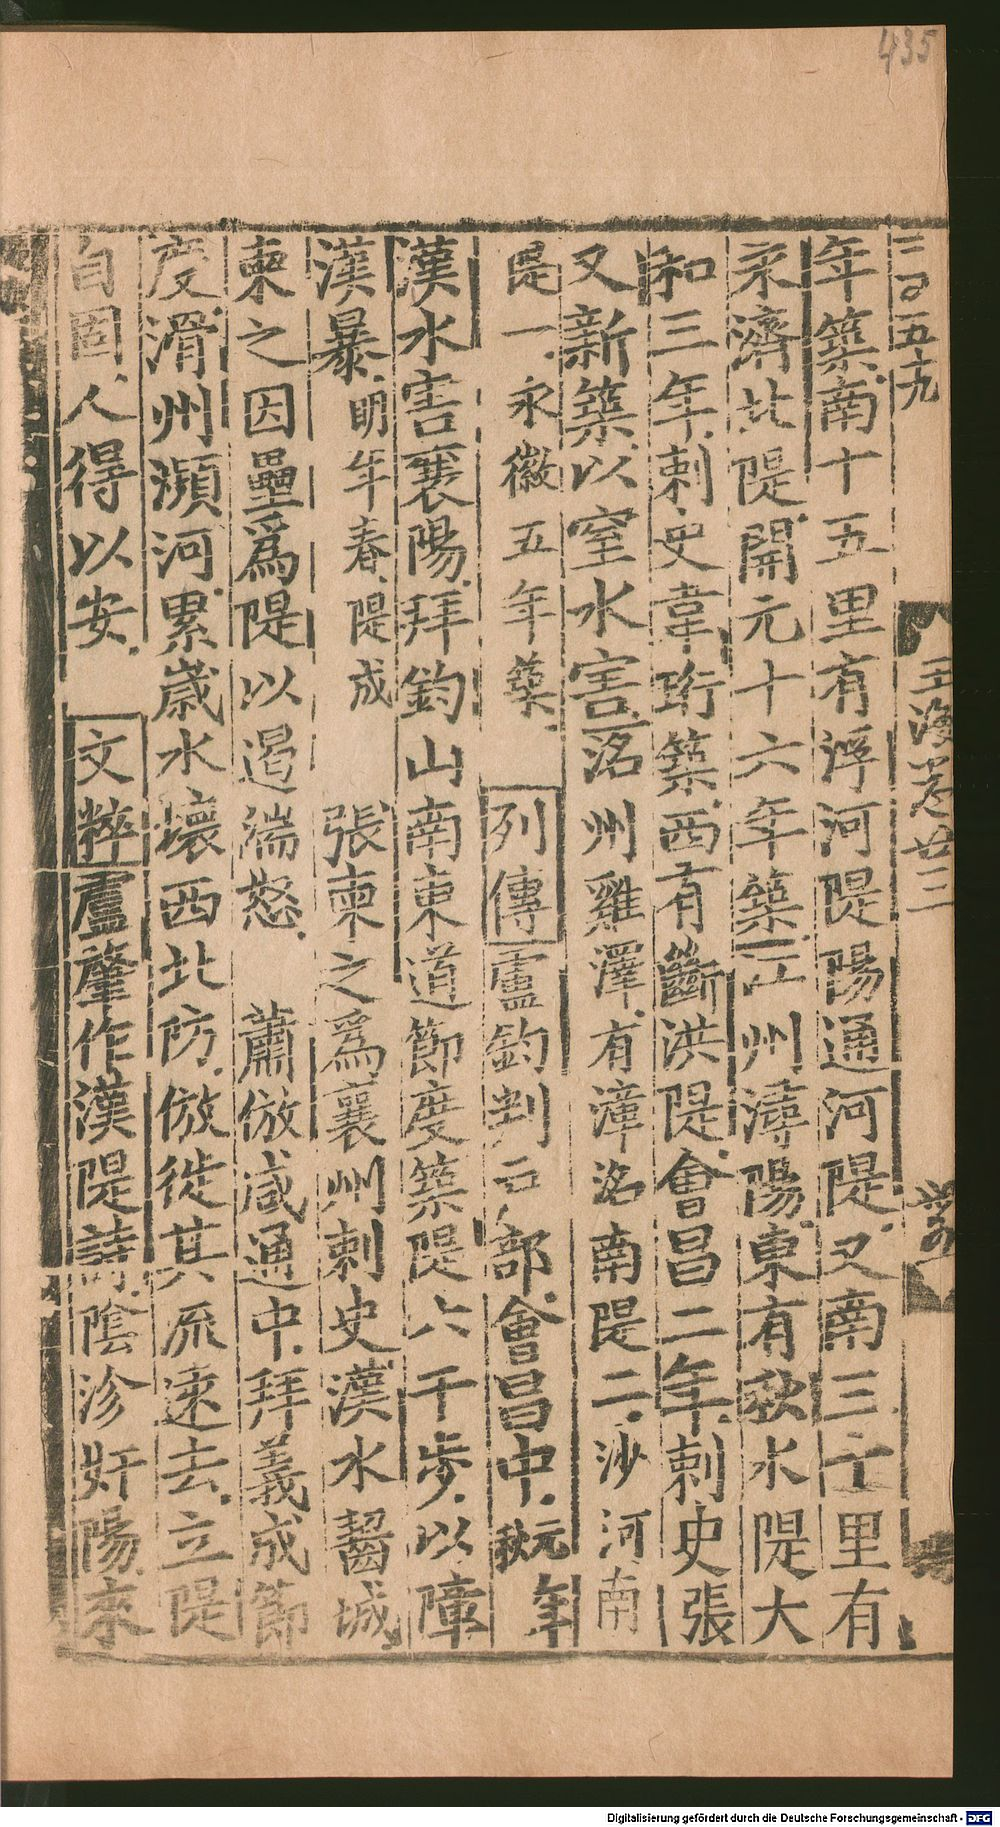 435
三百五十九
玉海卷廿三
年築南十五里有浮河隄陽通河隄又南三十里有
永濟北隄開元十六年築江州潯陽東有秋水隄大
和三年刺史韋珩築西有斷洪隄會昌二年刺史張
又新築以窒水害洺州雞澤有漳洺南隄二沙河南
隄一永徽五年築 列傳盧鈞判戶部會昌中元年秋
漢水害襄陽拜鈞山南東道節度築隄六千步以障
漢暴明年春隄成 張柬之爲襄州刺史漢水齧城
柬之因壘爲隄以遏湍怒 蕭倣咸通中拜義成節
度滑州瀕河累歲水壞西北防倣徙其流遠去立隄
自固人得以安 文粹盧肇作漢隄詩陰沴奸陽來
Digitalisierung gefördert durch die Deutsche Forschungsgemeinschaft - DFG